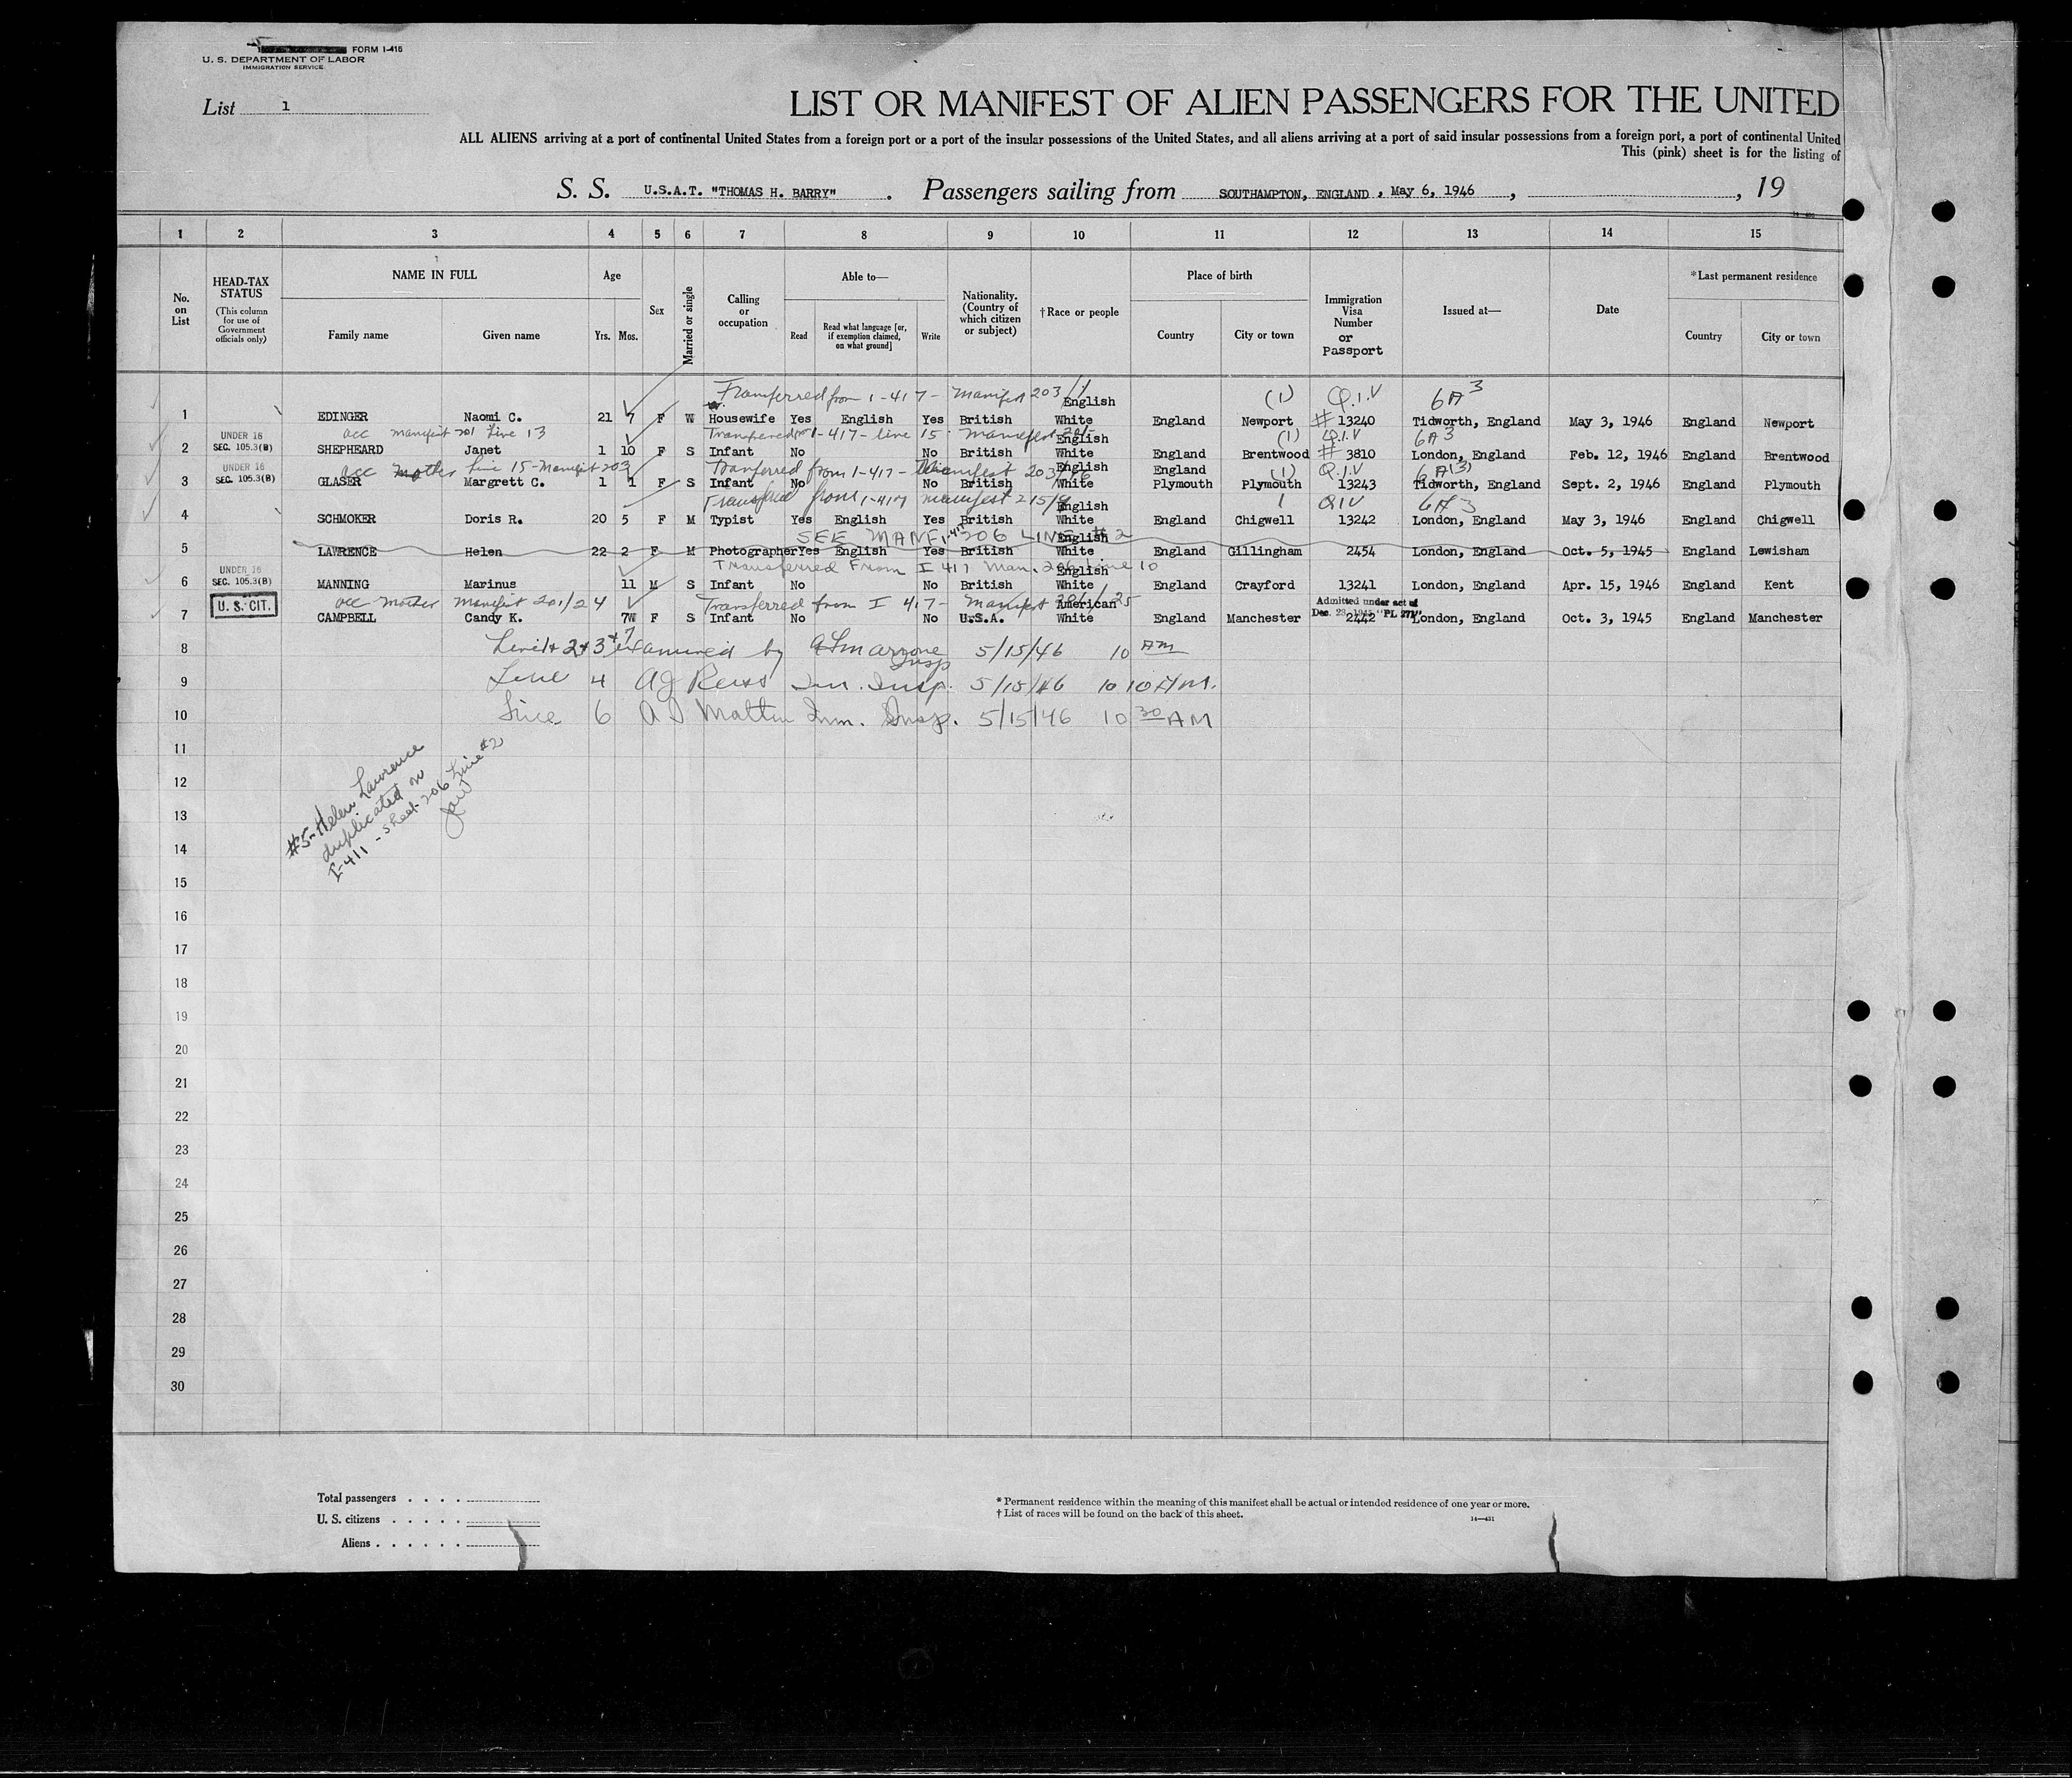 FORM I-415
U. S. DEPARTMENT OF LABOR
IMMIGRATION SERVICE
List 1
LIST OR MANIFEST OF ALIEN PASSENGERS FOR THE UNITED
ALL ALIENS arriving at a port of continental United States from a foreign port or a port of the insular possessions of the United States, and all aliens arriving at a port of said insular possessions from a foreign port, a port of continental United
This (pink) sheet is for the listing of
S. S. U.S.A.T. "THOMAS H. BARRY" . Passengers sailing from SOUTHAMPTON, ENGLAND , May 6, 1946 , , 19
1 2 3 4 5 6 7 8 9 10 11 12 13 14 15
No. on List
HEAD-TAX STATUS
(This column for use of Government officials only)
NAME IN FULL
Family name Given name
Age
Yrs. Mos.
Sex
Married or single
Calling or occupation
Able to—
Read Read what language [or, if exemption claimed, on what ground] Write
Nationality. (Country of which citizen or subject)
†Race or people
Place of birth
Country City or town
Immigration Visa Number or Passport
Issued at—
Date
*Last permanent residence
Country City or town
Transferred from 1-417 - Manifest 203/1 English (1) Q.I.V 6A3
1 EDINGER Naomi C. 21 7 F W Housewife Yes English Yes British White England Newport # 13240 Tidworth, England May 3, 1946 England Newport
UNDER 16 acc manifest 201 Line 13 Transferred from 1-417 - line 15 manifest English (1) Q.I.V 6A3
2 SEC. 105.3(B) SHEPHEARD Janet 1 10 F S Infant No No British White England Brentwood # 3810 London, England Feb. 12, 1946 England Brentwood
UNDER 16 acc mother Line 15 - Manifest 203 Transferred from 1-417 - Manifest 203 English England (1) Q.I.V 6A(3)
3 SEC. 105.3(B) GLASER Margrett C. 1 1 F S Infant No No British White Plymouth Plymouth 13243 Tidworth, England Sept. 2, 1946 England Plymouth
Transferred from 1-417 manifest 215/9 English 1 QIV 6A3
4 SCHMOKER Doris R. 20 5 F M Typist Yes English Yes British White England Chigwell 13242 London, England May 3, 1946 England Chigwell
SEE MANF I-417 206 LINE #2 English
5 LAWRENCE Helen 22 2 F M Photographer Yes English Yes British White England Gillingham 2454 London, England Oct. 5, 1945 England Lewisham
UNDER 16 Transferred From I 417 Man. 206 Line 10 English
6 SEC. 105.3(B) MANNING Marinus 11 M S Infant No No British White England Crayford 13241 London, England Apr. 15, 1946 England Kent
U. S. CIT. acc mother Manifest 201/24 Transferred from I 417 - Manifest American Admitted under act of Dec. 28, 1945 "PL 271"
7 CAMPBELL Candy K. 7W F S Infant No No U.S.A. White England Manchester 2442 London, England Oct. 3, 1945 England Manchester
8 Line 1+2+3+7 examined by Insp 5/15/46 10 AM
9 Line 4 AJ Reiss Im. Insp. 5/15/46 10 10 A.M.
10 Line 6 Imm. Insp. 5/15/46 10 30 AM
11
12
13
14
#5 - Helen Lawrence
duplicated on
I-411 - sheet 206 Line #2
15
16
17
18
19
20
21
22
23
24
25
26
27
28
29
30
Total passengers . . . .
U. S. citizens . . . . .
Aliens . . . . . .
* Permanent residence within the meaning of this manifest shall be actual or intended residence of one year or more.
† List of races will be found on the back of this sheet.
14—431